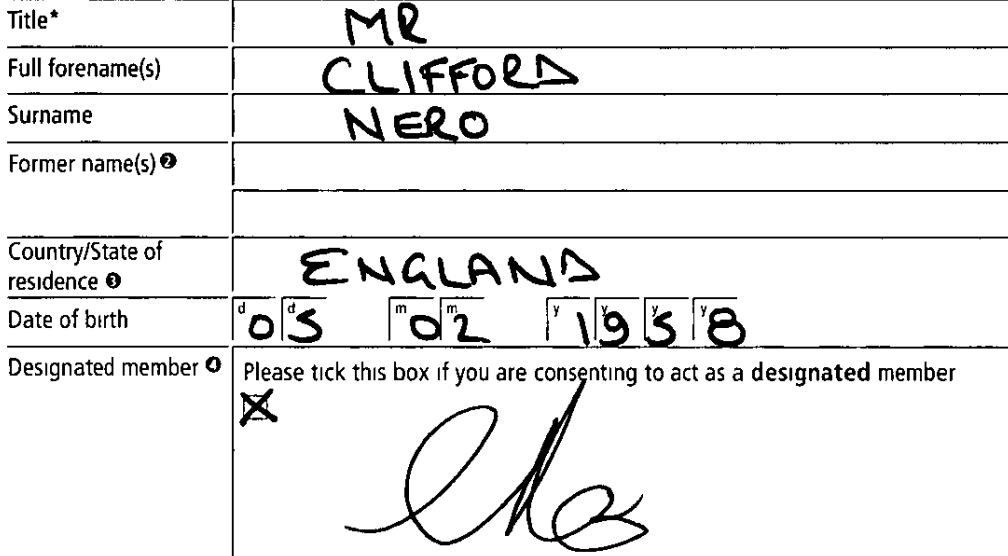 Title* MR
Full forename(s) CLIFFORD
Surname NERO
Former name(s) ❷
Country/State of
residence ❸ ENGLAND
Date of birth d0 d5 m0 m2 y1 y9 y5 y8
Designated member ❹ Please tick this box if you are consenting to act as a designated member
X